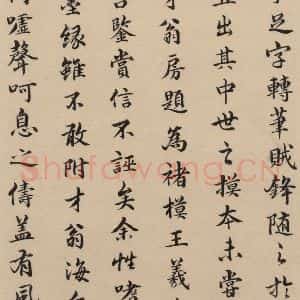 足字轉筆賊鋒隨之於
直出其中世之摸本未嘗
才翁房題為褚模王羲
鑒賞信不誣矣余性嗜
墨緣雖不敢附才翁海
噓聲呵息之儔蓋有風
Shufawang.CN